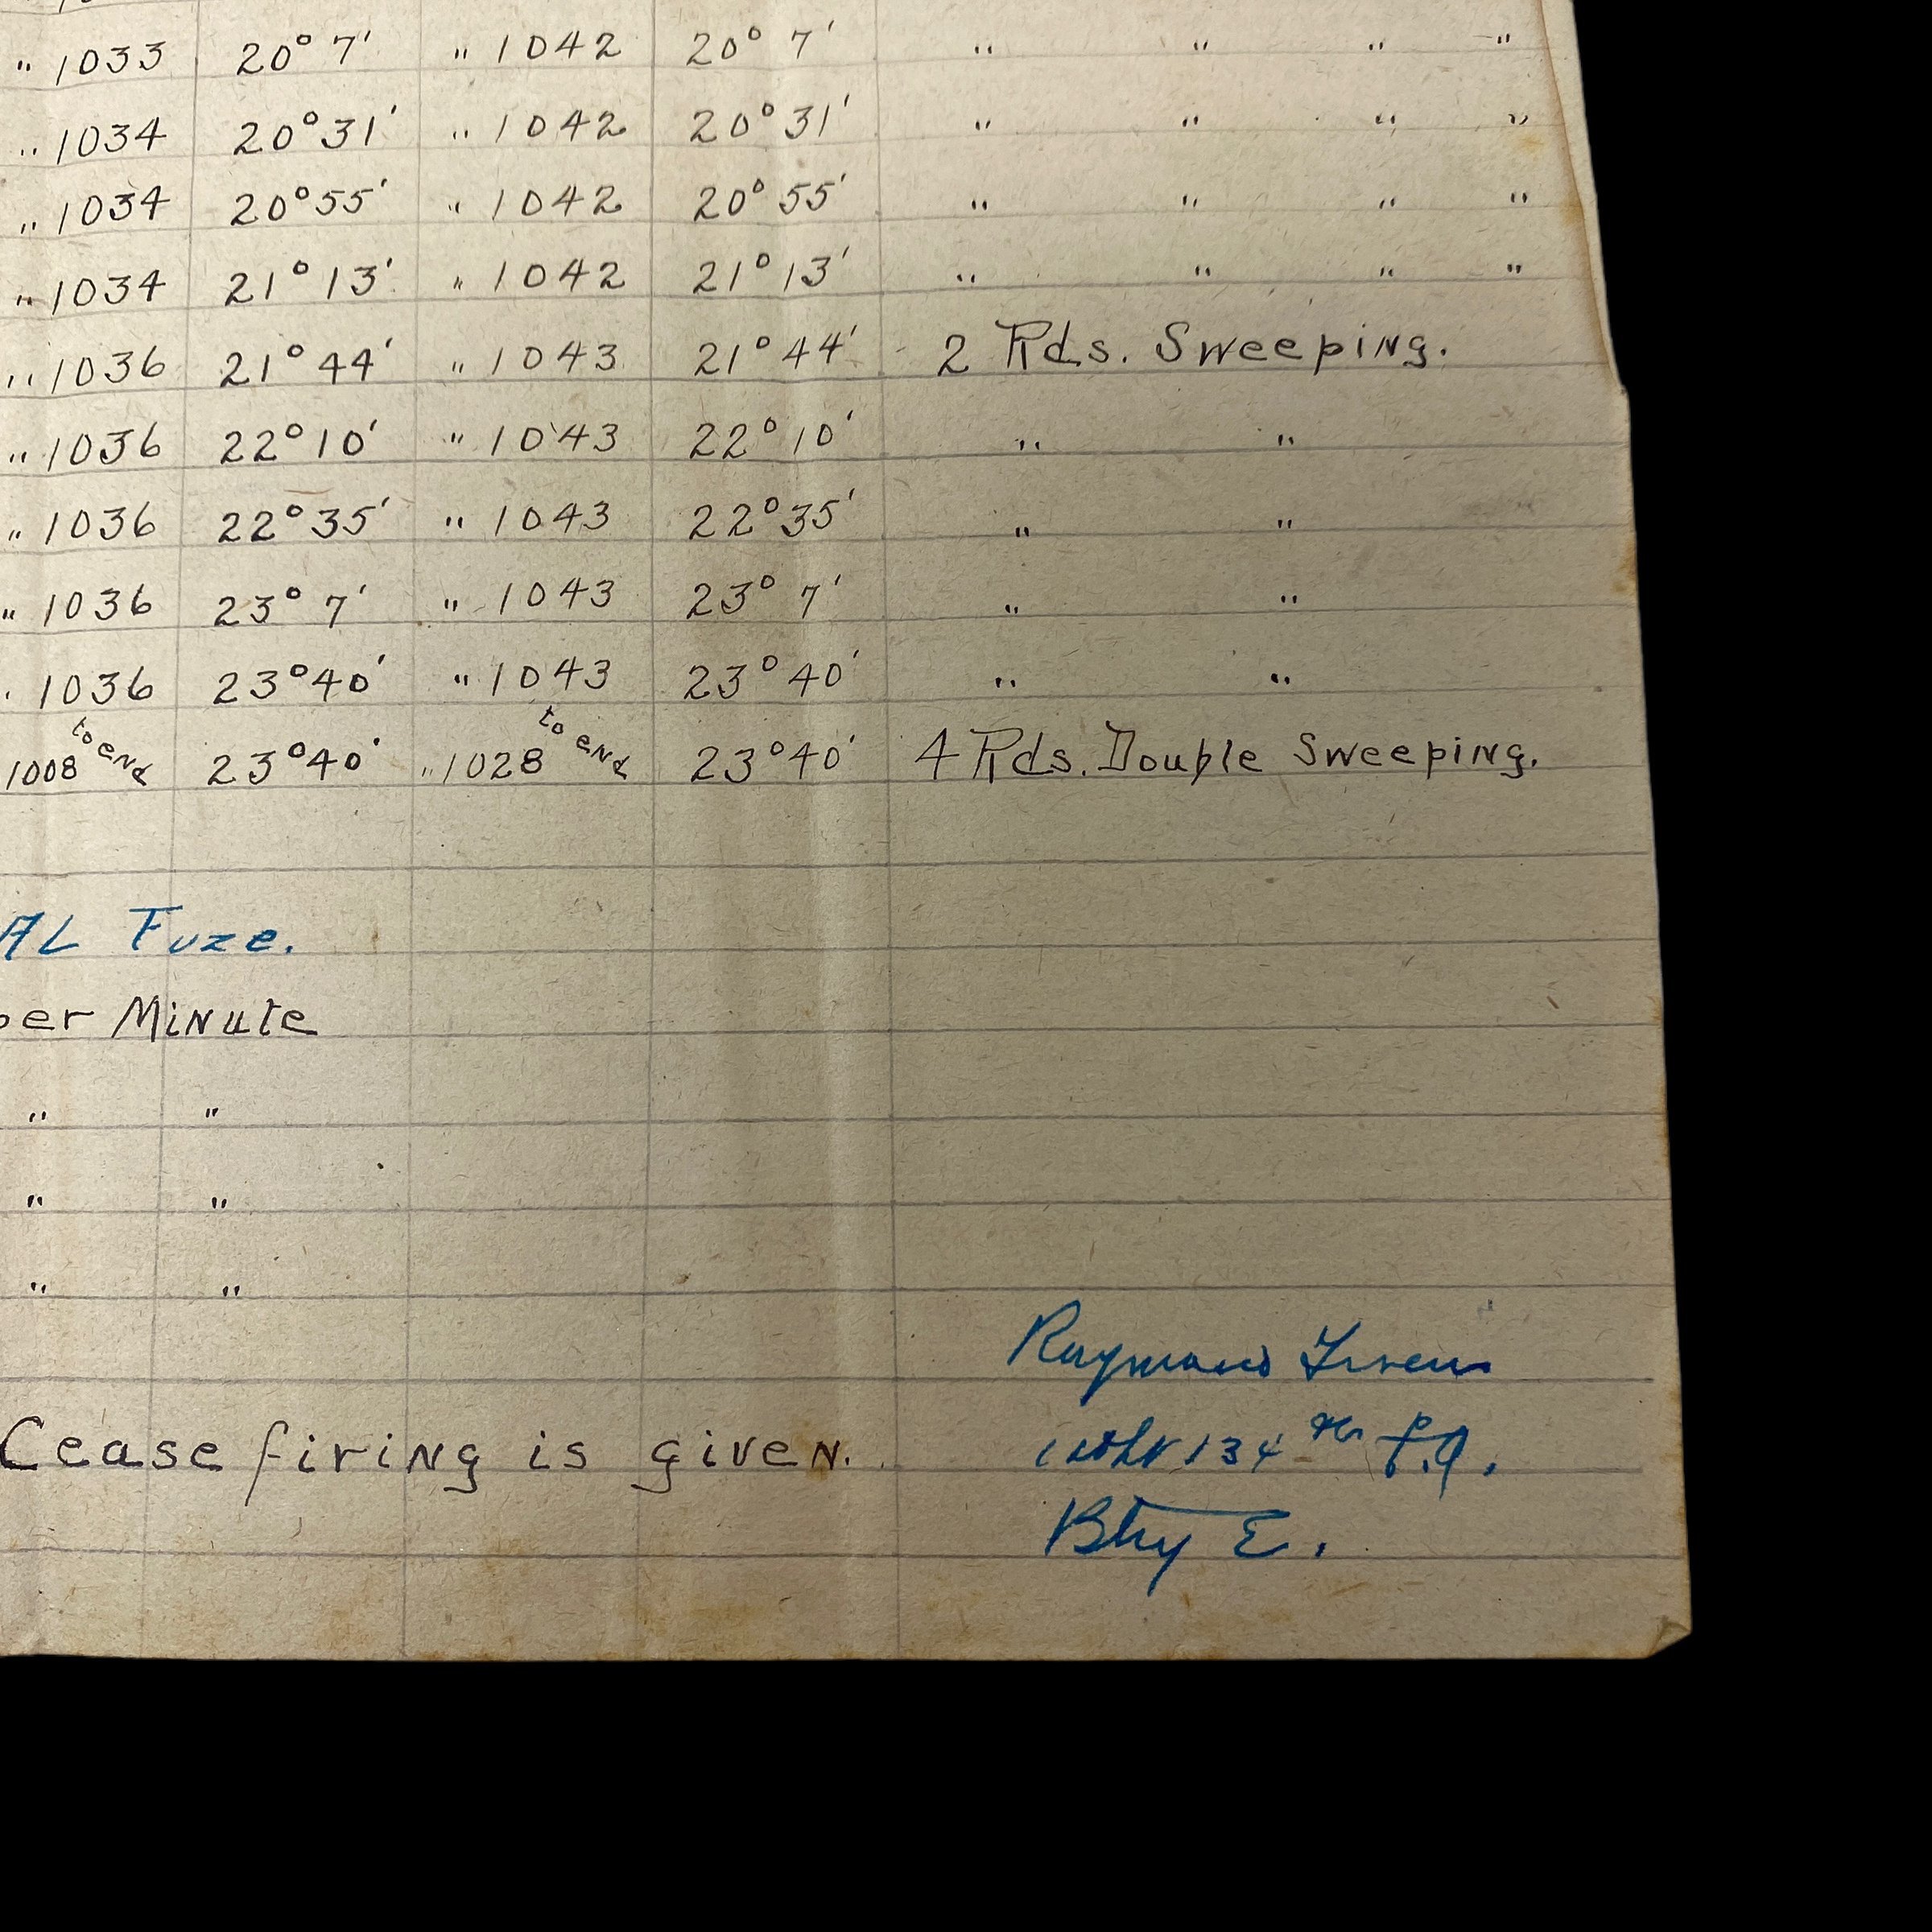 " 1033 20° 7' " 1042 20° 7' " " " "
" 1034 20° 31' " 1042 20° 31' " " " "
" 1034 20° 55' " 1042 20° 55' " " " "
" 1034 21° 13' " 1042 21° 13' " " " "
" 1036 21° 44' " 1043 21° 44' 2 Rds. Sweeping.
" 1036 22° 10' " 1043 22° 10' " "
" 1036 22° 35' " 1043 22° 35' " "
" 1036 23° 7' " 1043 23° 7' " "
" 1036 23° 40' " 1043 23° 40' " "
1008 to end 23° 40' " 1028 to end 23° 40' 4 Rds. Double Sweeping.
AL Fuze.
per Minute
" "
" "
" "
Raymond
Cease firing is given.
134 th F.A.
Btry E.